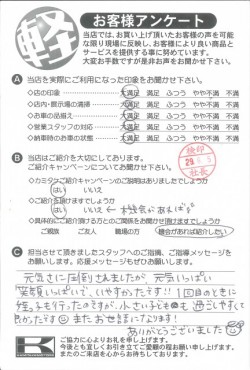 軽
お客様アンケート
当店では、お買い上げ頂いたお客様の声を可能
な限り現場に反映し、お客様により良い商品と
サービスを提供する事に努めています。
大変お手数ですが是非お声をお聞かせ下さい。
A 当店を実際にご利用になった印象をお聞かせ下さい。
◇店の印象 大満足 満足 ふつう やや不満 不満
◇店内・展示場の清掃 大満足 満足 ふつう やや不満 不満
◇お車の品揃え 大満足 満足 ふつう やや不満 不満
◇営業スタッフの対応 大満足 満足 ふつう やや不満 不満
◇納車時のお車の状態 大満足 満足 ふつう やや不満 不満
B 当店はご紹介を大切にしてあります。
ご紹介キャンペーンについてお聞かせ下さい。
検印
29.
社長
◇カミタケご紹介キャンペーンのご説明はありましたでしょうか
はい いいえ
◇ご紹介を頂けますでしょうか
はい いいえ ←機会があれば
◇具体的にご紹介頂ける方との関係をお聞かせ頂けますでしょうか
ご親族 ご友人 職場の方 機会があれば紹介したい
C 担当させて頂きましたスタッフへのご指摘、ご指導メッセージを
お願いします。応援メッセージもぜひお願いします。
元気さに圧倒されましたが、元気いっぱい
笑顔いっぱいで、いやすかったです!!1回目のときに
息子も行ったのですが、小さい子どもも過ごしやすくて
良かったです またお世話になります!
ありがとうございました
K
ご協力に心よりお礼を申し上げます。
今後とも宜しくお引き立てご愛顧の程お願い申し上げます。
またのご来店を心からお待ちしております。